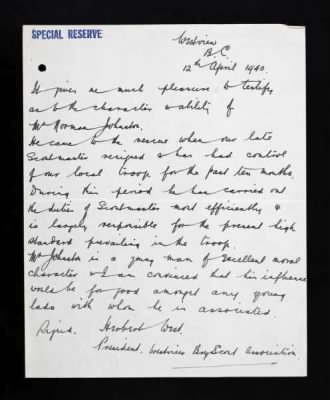 SPECIAL RESERVE
Westview
B.C.
12th April 1940.
It gives me much pleasure to testify
as to the character & ability of
Mr Norman Johnston.
He came to the rescue when our late
Scoutmaster resigned & has had control
of our local troop for the past ten months.
During this period he has carried out
the duties of Scoutmaster most efficiently &
is largely responsible for the present high
standard prevailing in the troop.
Mr Johnston is a young man of excellent moral
character & I am convinced that his influence
would be for good amongst any young
lads with whom he is associated.
Signed. Herbert West.
President. Westview Boy Scout Association.